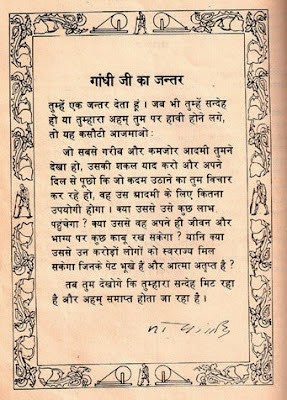 गांधी जी का जन्तर
तुम्हें एक जन्तर देता हूं । जब भी तुम्हें सन्देह
हो या तुम्हारा अहम् तुम पर हावी होने लगे,
तो यह कसौटी आजमाओ:
जो सबसे गरीब और कमजोर आदमी तुमने
देखा हो, उसकी शकल याद करो और अपने
दिल से पूछो कि जो कदम उठाने का तुम विचार
कर रहे हो, वह उस आदमी के लिए कितना
उपयोगी होगा । क्या उससे उसे कुछ लाभ
पहुंचेगा ? क्या उससे वह अपने ही जीवन और
भाग्य पर कुछ काबू रख सकेगा ? यानि क्या
उससे उन करोड़ों लोगों को स्वराज्य मिल
सकेगा जिनके पेट भूखे हैं और आत्मा अतृप्त है ?
तब तुम देखोगे कि तुम्हारा सन्देह मिट रहा
है और अहम् समाप्त होता जा रहा है ।